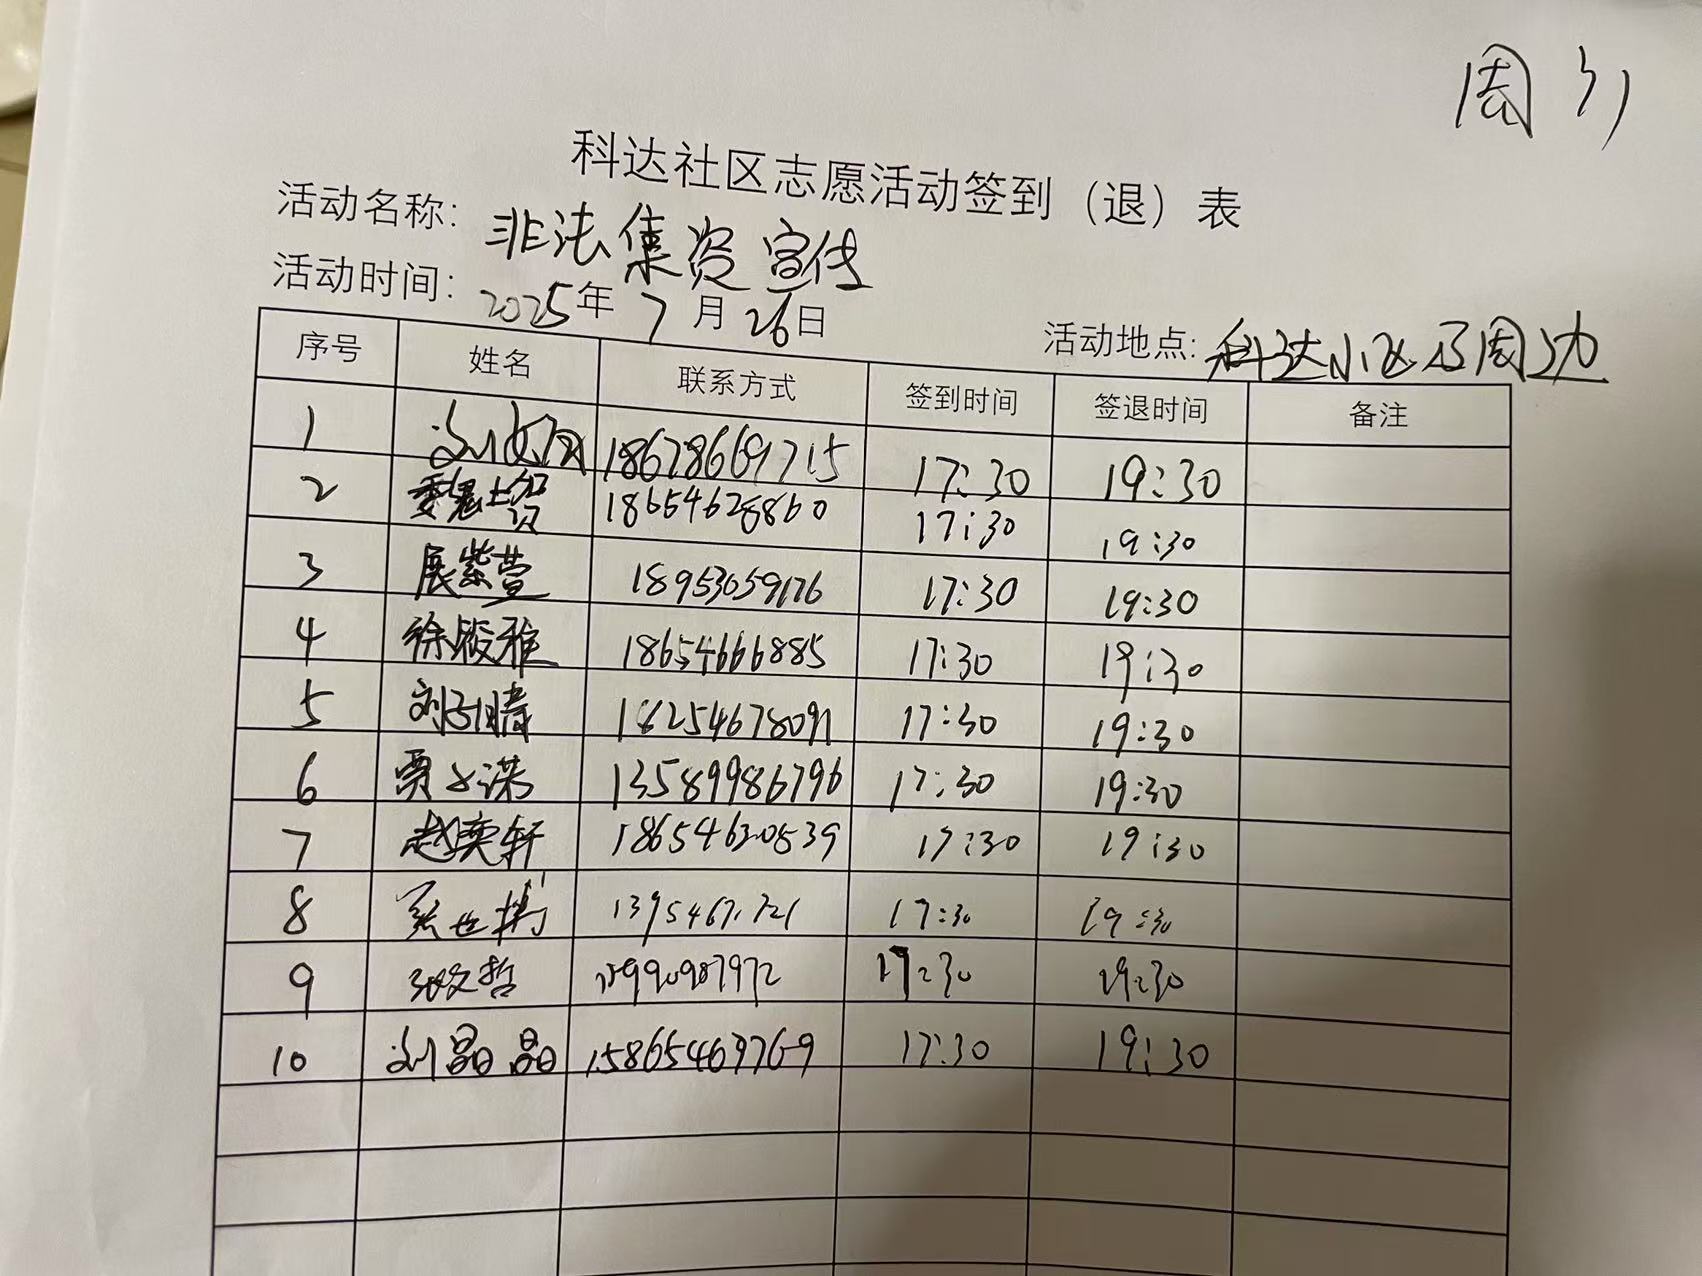 周
科达社区志愿活动签到（退）表
活动名称：非法集资宣传
活动时间：2025年7月26日
活动地点：科达小区及周边
序号 姓名 联系方式 签到时间 签退时间 备注
1 18678669715 17:30 19:30
2 18654628860 17:30 19:30
3 展紫萱 18953059176 17:30 19:30
4 徐筱雅 18654666885 17:30 19:30
5 刘子晴 18254678091 17:30 19:30
6 贾 13589986796 17:30 19:30
7 赵奕轩 18654630539 17:30 19:30
8 17:30 19:30
9 17:30 19:30
10 刘晶晶 15865469769 17:30 19:30